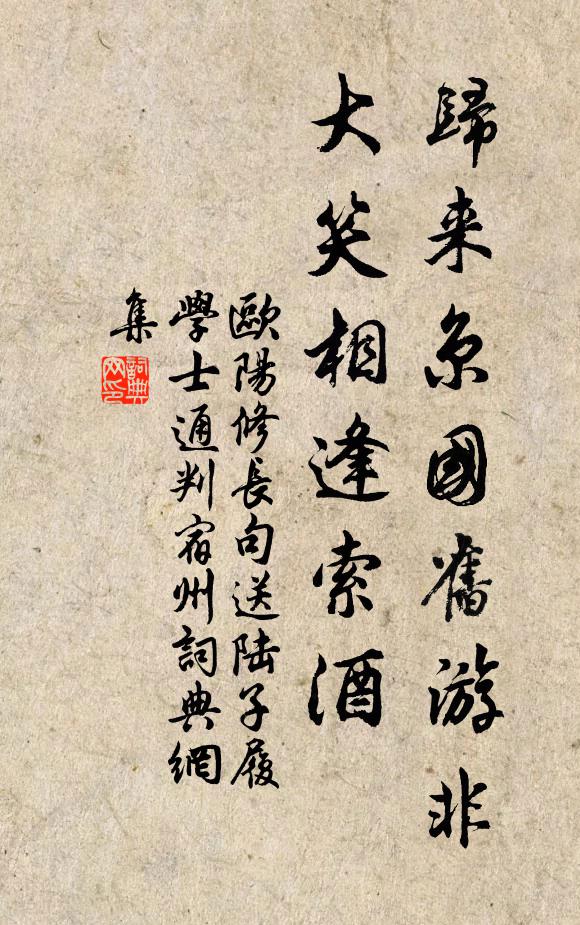 歸来京國舊游非
大笑相逢索酒
歐陽修長句送陸子履
學士通判宿州詞典網
集
詞典網印